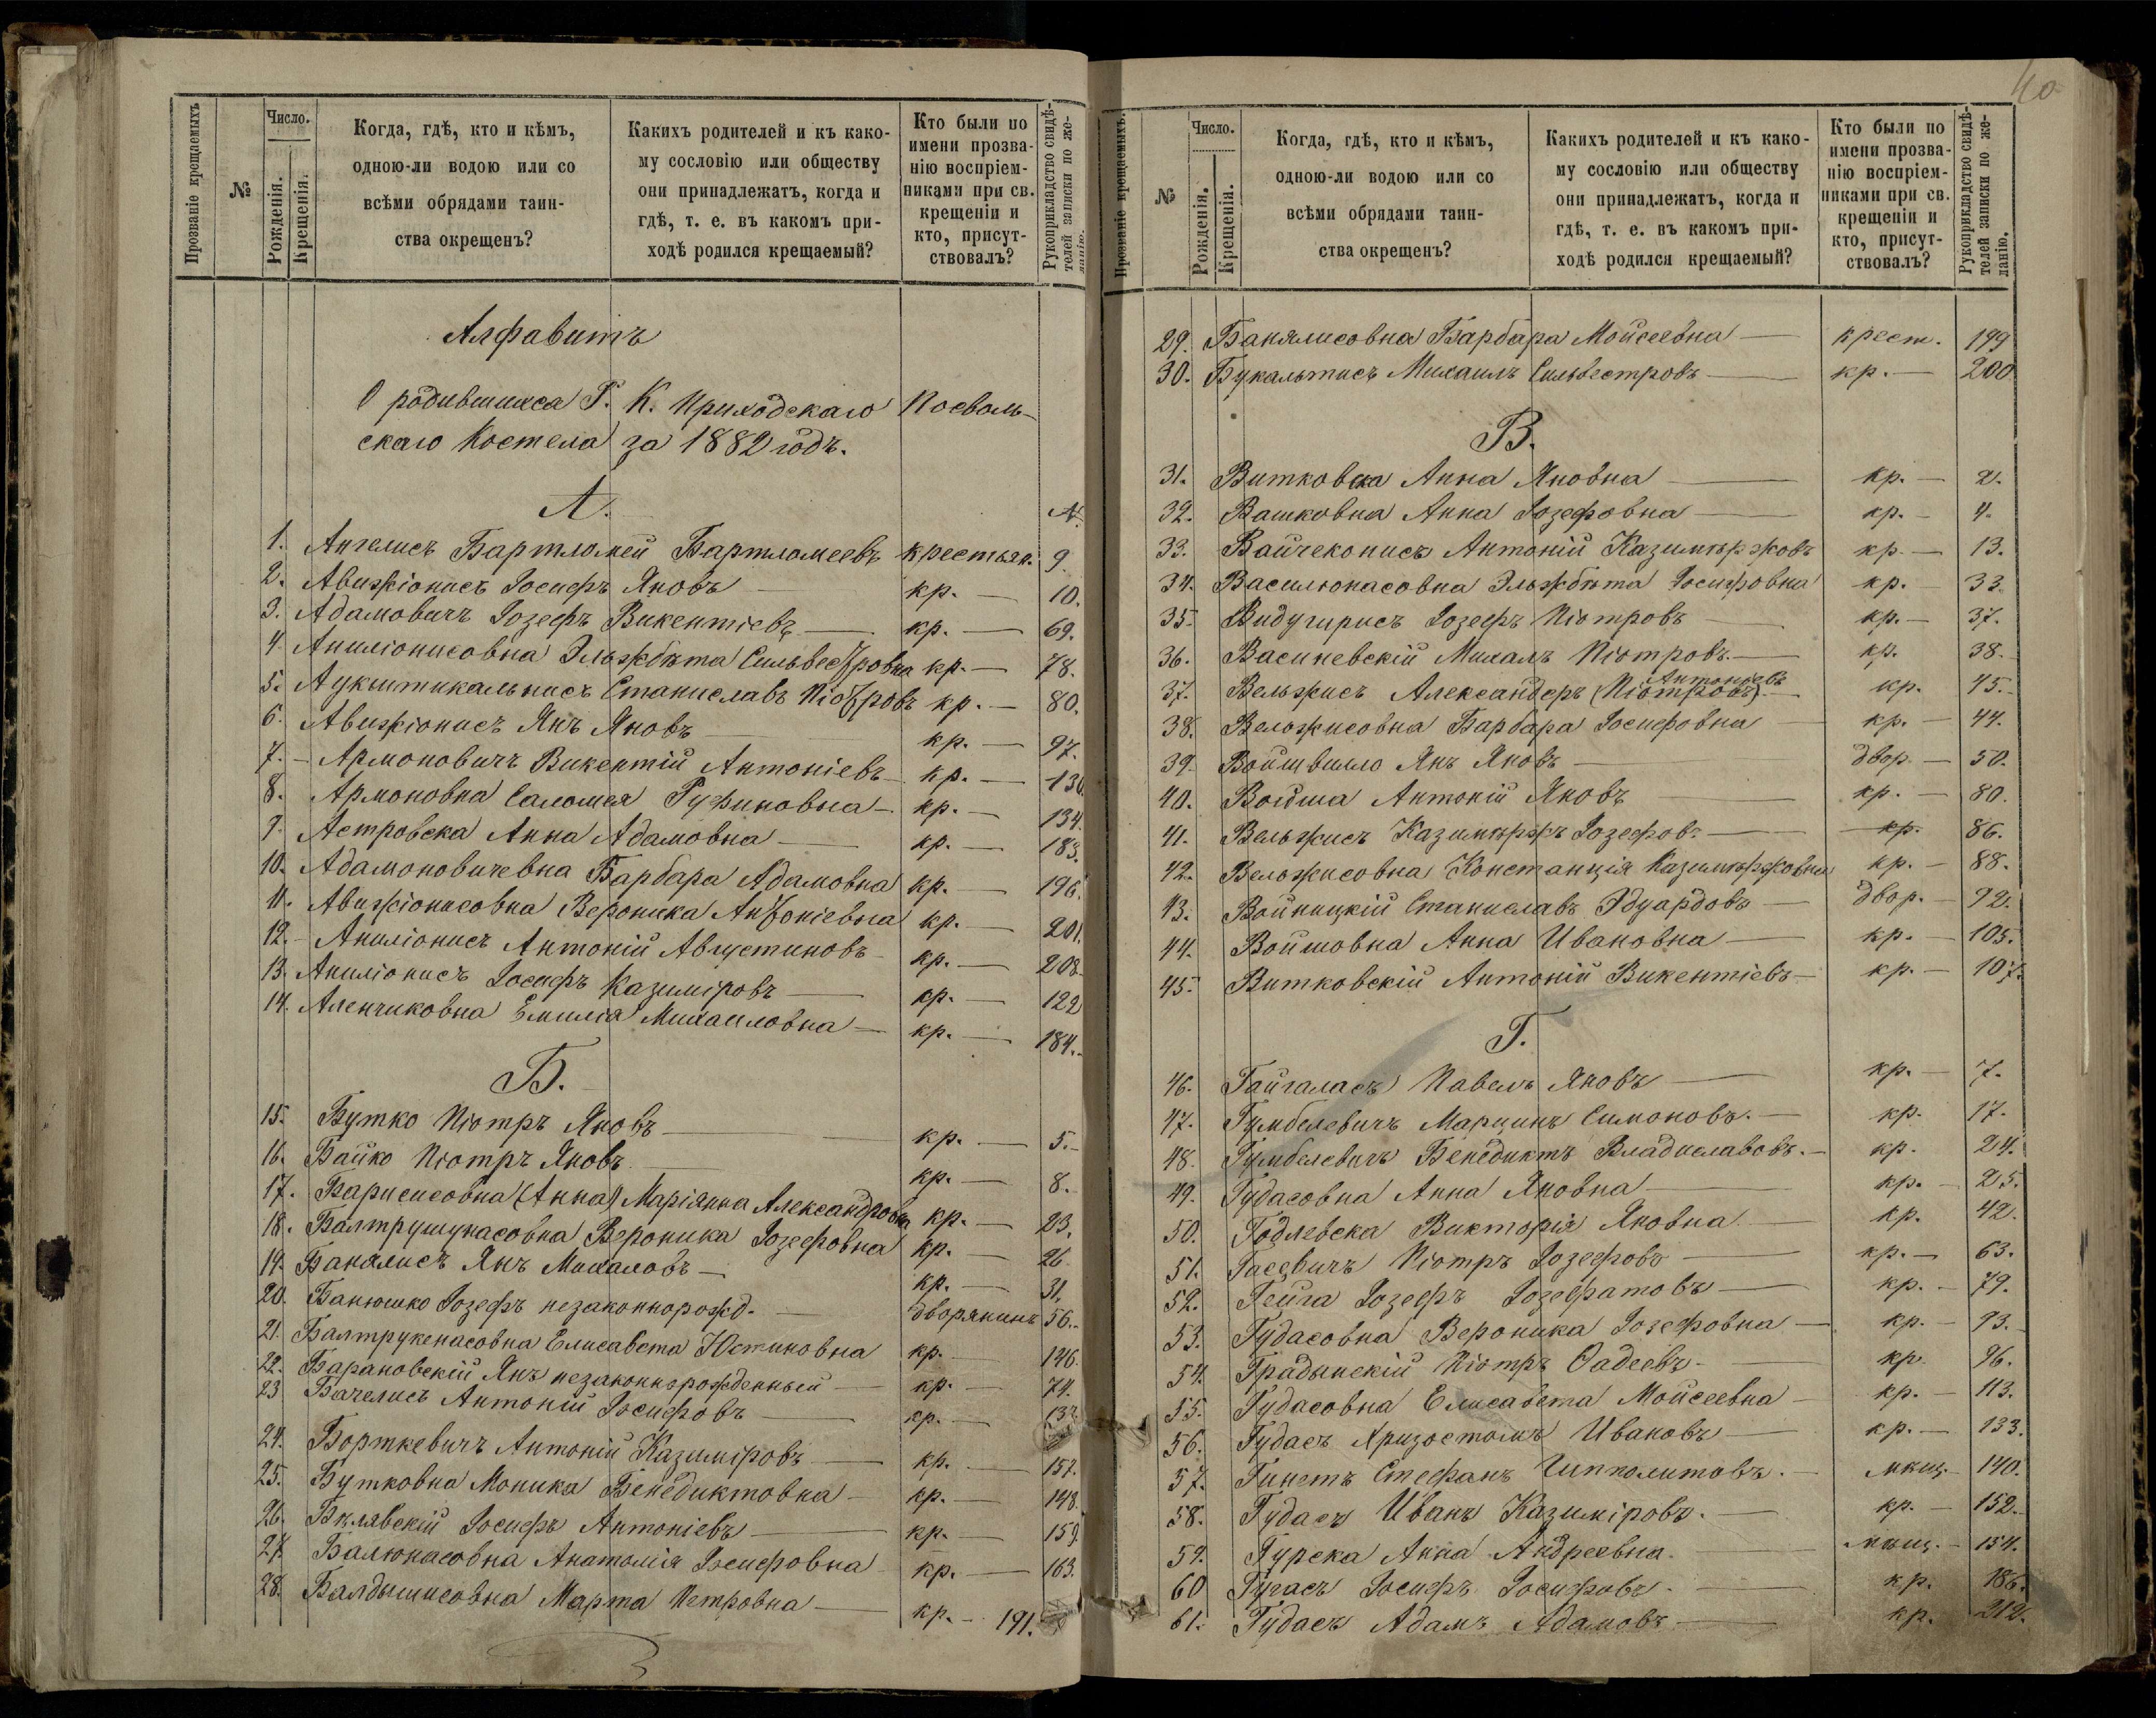 Прозваніе крещаемыхъ
№
Число.
Рожденія.
Крещенія.
Когда, гдѣ, кто и кѣмъ,
одною-ли водою или со
всѣми обрядами таин-
ства окрещенъ?
Какихъ родителей и къ како-
му сословію или обществу
они принадлежатъ, когда и
гдѣ, т. е. въ какомъ при-
ходѣ родился крещаемый?
Кто были по
имени прозва-
нію воспріем-
никами при св.
крещеніи и
кто, присут-
ствовалъ?
Рукоприкладство свидѣ-
телей записки по же-
ланію.
Алфавитъ
О родившихся Р. К. Приходскаго Посволь-
скаго Костела за 1882 годъ.
А. №
1. Ангелисъ Бартломей Бартломеевъ крестьян. 9.
2. Авижіонисъ Іосифъ Яновъ кр. — 10.
3. Адамовичъ Іозефъ Викентіевъ — кр. — 69.
4. Аниліонисовна Эльжбѣта Сильвестровна кр. — 78.
5. Аукштикальнисъ Станиславъ Піотровъ кр. — 80.
6. Авижіонисъ Янъ Яновъ кр. — 97.
7. Армоновичъ Викентій Антоніевъ — кр. — 130.
8. Армоновна Саломея Руфиновна — кр. — 134.
9. Астровска Анна Адамовна — кр. — 183.
10. Адамоновичевна Барбара Адамовна кр. — 196.
11. Авижіонисовна Вероника Антоніевна кр. — 201.
12. Аниліонисъ Антоній Августиновъ кр. — 208.
13. Аниліонисъ Іосифъ Казиміровъ — кр. — 122
14. Аленчиковна Емилія Михаиловна — кр. — 184.
Б.
15. Бутко Піотръ Яновъ — кр. — 5.
16. Байко Піотръ Яновъ кр. — 8.
17. Барисисовна (Анна) Маріянна Александровна кр. — 23.
18. Балтрушунасовна Вероника Іозефовна кр. — 26.
19. Баналисъ Янъ Михаловъ — кр. — 31.
20. Банюшко Іозефъ незаконнорожд. — дворянинъ 56.
21. Балтрукенасовна Елисавета Юстиновна кр. — 146.
22. Барановскій Янъ незаконнорожденный — кр. — 74.
23 Бачелисъ Антоній Іосифовъ — кр. — 137.
24. Борткевичъ Антоній Казиміровъ — кр. — 157.
25. Бутковна Моника Бенедиктовна — кр. — 148.
26. Бѣлявскій Іосифъ Антоніевъ — кр. — 159.
27. Балюнасовна Анатолія Іосифовна кр. — 163.
28. Балдышисовна Марта Петровна — кр. — 191.
40
Прозваніе крещаемыхъ.
№
Число.
Рожденія.
Крещенія.
Когда, гдѣ, кто и кѣмъ,
одною-ли водою или со
всѣми обрядами таин-
ства окрещенъ?
Какихъ родителей и къ како-
му сословію или обществу
они принадлежатъ, когда и
гдѣ, т. е. въ какомъ при-
ходѣ родился крещаемый?
Кто были по
имени прозва-
нію воспріем-
никами при св.
крещеніи и
кто, присут-
ствовалъ?
Рукоприкладство свидѣ-
телей записки по же-
ланію.
29. Банялисовна Барбара Мойсеевна — крест. 199
30. Букальтисъ Михаилъ Сильвестровъ — кр. — 200
В.
31. Витковска Анна Яновна — кр. — 2.
32. Вашковна Анна Іозефовна — кр. — 4.
33. Вайчеконисъ Антоній Казимѣржовъ кр. — 13.
34. Василюнасовна Эльжбѣта Іосифовна кр. 33.
35. Видугирисъ Іозефъ Піотровъ — кр. — 37.
36. Васиневскій Михалъ Піотровъ. — кр. 38.
Антоніевъ
37. Вельжисъ Александеръ (Піотровъ) — кр. 45.
38. Вельжисовна Барбара Іосифовна — кр. — 44.
39. Войшвилло Янъ Яновъ — двор. — 50.
40. Войша Антоній Яновъ — кр. — 80.
41. Вельжисъ Казимѣржъ Іозефовъ — кр. 86.
42. Вельжисовна Констанція Казимѣржовна кр. — 88.
43. Войницкій Станиславъ Эдуардовъ — двор. — 92.
44. Войшовна Анна Ивановна — кр. — 105.
45. Витковскій Антоній Викентіевъ — кр. — 107.
Г.
46. Гайгаласъ Павелъ Яновъ — кр. — 7.
47. Гумбелевичъ Марцинъ Симоновъ. — кр. 17.
48. Гумбелевичъ Бенедиктъ Владиславовъ. — кр. 24.
49. Гудасовна Анна Яновна — кр. — 25.
50. Годлевска Викторія Яновна — кр. 42.
51. Гасевичъ Піотръ Іозефовъ — кр. — 63.
52. Гейга Іозефъ Іозефатовъ — кр. — 79.
53. Гудасовна Вероника Іозефовна — кр. — 93.
54. Градынскій Піотръ Фадеевъ. — кр. 96.
55. Гудасовна Елисавета Мойсеевна — кр. — 113.
56. Гудасъ Хризостомъ Ивановъ — кр. — 133.
57. Гинетъ Стефанъ Ипполитовъ. — мѣщ. — 140.
58. Гудасъ Иванъ Казиміровъ. — кр. — 152.
59. Гурска Анна Андреевна. — мѣщ. — 154.
60 Гугасъ Іосифъ Іосифовъ. — кр. 186.
61. Гудасъ Адамъ Адамовъ — кр. 212.